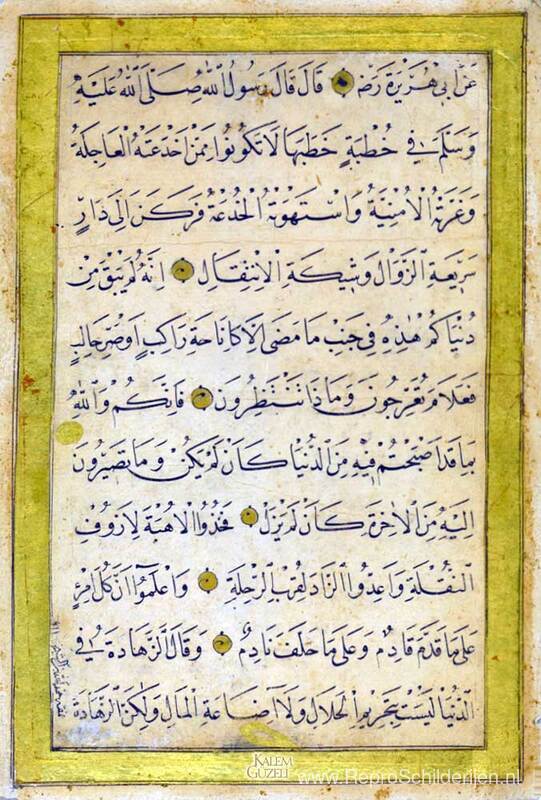 عَنْ اَبِى هُرَيْرَةَ رَضَ قَالَ قَالَ رَسُولُ اللّٰهِ صَلَّى اللّٰهُ عَلَيْهِ
وَسَلَّمَ فِى خُطْبَةٍ خَطَبَهَا لَا تَكُونُوا مِمَّنْ اخْدَعَتْهُ الْعَاجِلَةُ
وَغَرَّتْهُ الْاُمْنِيَّةُ وَاسْتَهْوَتْهُ الْخُدْعَةُ فَرَكَنَ اِلَى دَارٍ
سَرِيعَةِ الزَّوَالِ وَشِيكَةِ الْاِنْتِقَالِ اِنَّهُ لَمْ يَبْقَ مِنْ
دُنْيَاكُمْ هٰذِهِ فِى جَنْبِ مَا مَضَى اِلَّا كَاِنَاخَةِ رَاكِبٍ اَوْ صَرِّ حَالِبٍ
فَعَلَامَ تُعَرِّجُونَ وَمَاذَا تَنْتَظِرُونَ فَاِنَّكُمْ وَاللّٰهِ
بِمَا قَدْ اَصْبَحْتُمْ فِيهِ مِنَ الدُّنْيَا كَاَنْ لَمْ يَكُنْ وَمَا تَصِيرُونَ
اِلَيْهِ مِنَ الْاٰخِرَةِ كَاَنْ لَمْ يَزَلْ فَخُذُوا الْاُهْبَةَ لِاَزُوفِ
النُّقْلَةِ وَاَعِدُّوا الزَّادَ لِقُرْبِ الرِّحْلَةِ وَاعْلَمُوا اَنَّ كُلَّ امْرِئٍ
عَلَى مَا قَدَّمَ قَادِمٌ وَعَلَى مَا خَلَّفَ نَادِمٌ وَقَالَ الزَّهَادَةُ فِى
الدُّنْيَا لَيْسَتْ بِتَحْرِيمِ الْحَلَالِ وَلَا اِضَاعَةِ الْمَالِ وَلٰكِنَّ الزَّهَادَةَ
KALEM
GÜZELİ
www.ReproSchilderijen.nl